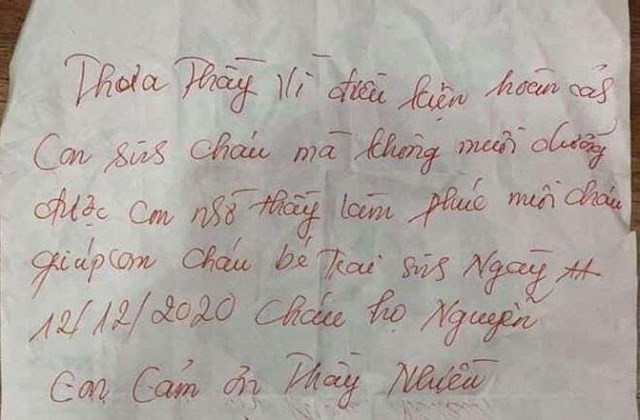 Thưa Thầy Vì điều kiện hoàn cảh
Con sins cháu mà không nuôi dưỡng
được con nhờ thầy làm phúc nuôi cháu
giúp con cháu bé trai sins Ngày
12/12/2020 cháu họ Nguyễn
Con Cảm ơn Thầy Nhiều